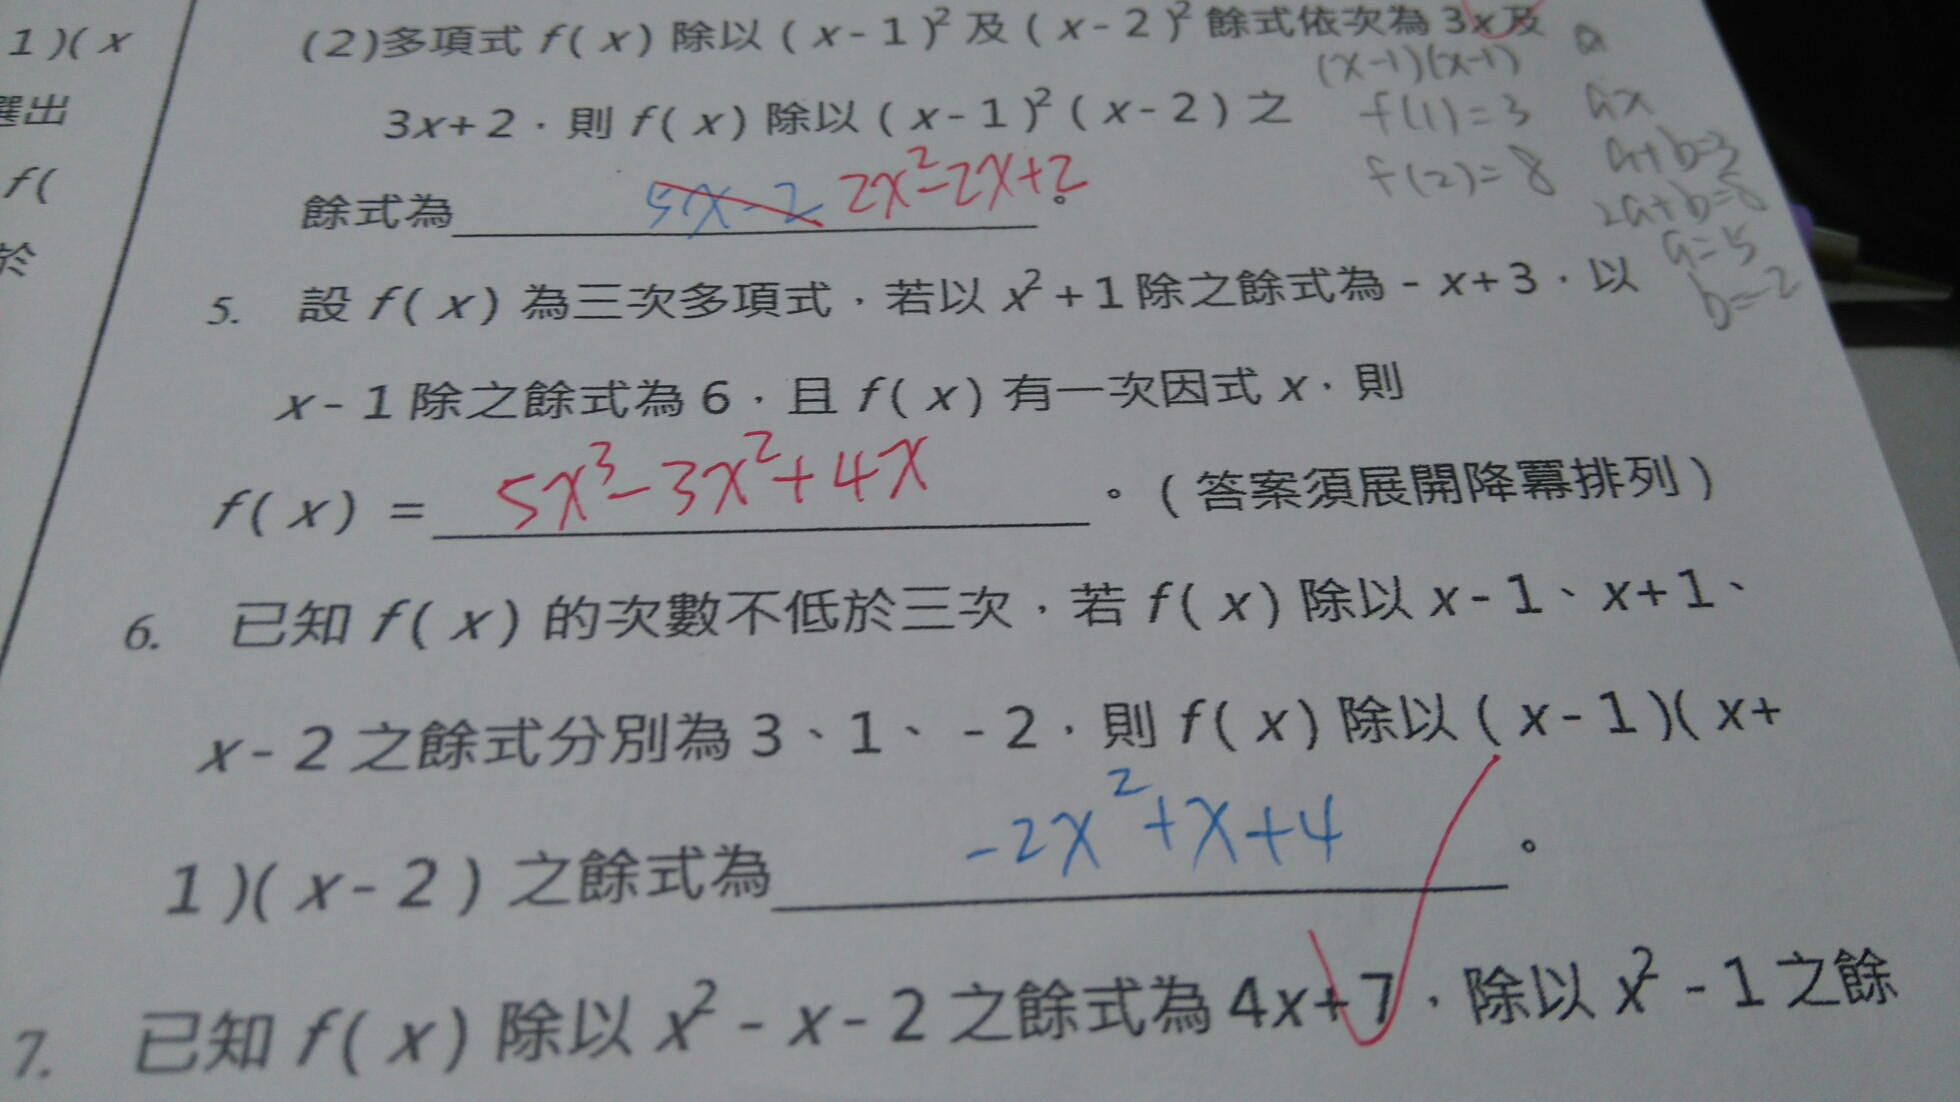 1)(x
選出
f(
於
(2)多項式 f(x) 除以 (x-1)² 及 (x-2)² 餘式依次為 3x 及
3x+2，則 f(x) 除以 (x-1)²(x-2) 之
餘式為 5x-2 2x²-2x+2 。
(x-1)(x-1)
f(1)=3
f(2)=8
a
ax
a+b=3
2a+b=8
a=5
b=-2
5. 設 f(x) 為三次多項式，若以 x²+1 除之餘式為 -x+3，以
x-1 除之餘式為 6，且 f(x) 有一次因式 x，則
f(x) = 5x³-3x²+4x 。(答案須展開降冪排列)
6. 已知 f(x) 的次數不低於三次，若 f(x) 除以 x-1、x+1、
x-2 之餘式分別為 3、1、-2，則 f(x) 除以 (x-1)(x+
1)(x-2) 之餘式為 -2x²+x+4 。
7. 已知 f(x) 除以 x²-x-2 之餘式為 4x+7，除以 x²-1 之餘